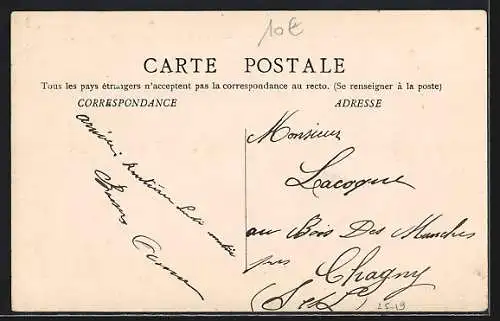 10€
CARTE POSTALE
Tous les pays étrangers n'acceptent pas la correspondance au recto. (Se renseigner à la poste)
CORRESPONDANCE
ADRESSE
Monsieur
Lacogne
au Bois Des Manches
près
Chagny
(S et L)